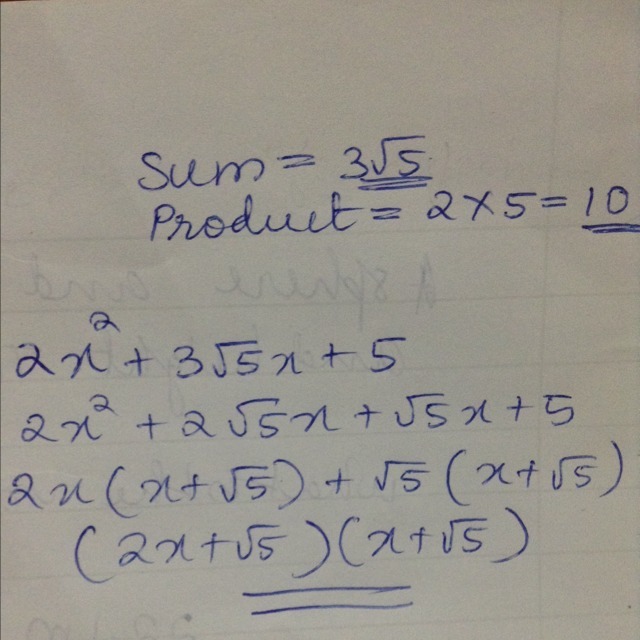 Sum = 3√5
Product = 2×5 = 10
2x² + 3√5x + 5
2x² + 2√5x + √5x + 5
2x(x+√5) + √5(x+√5)
(2x+√5)(x+√5)
A sphere and